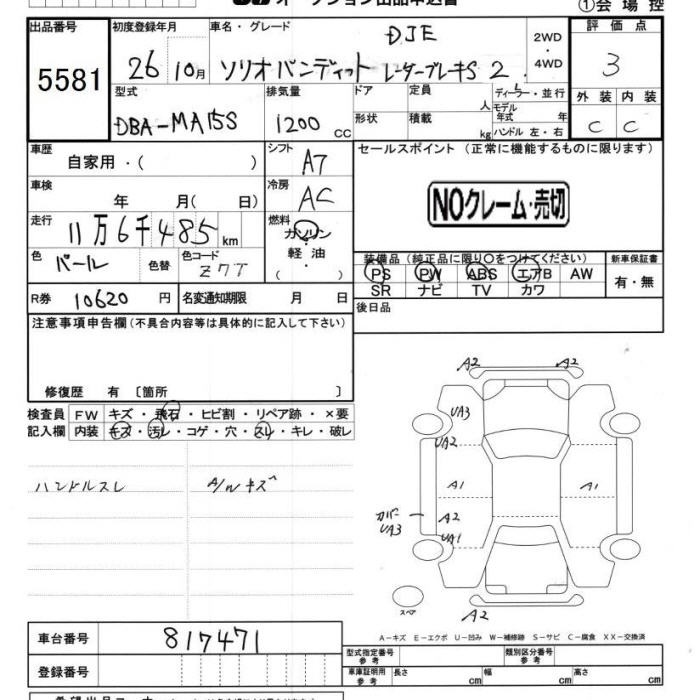 オークション出品申込書
①会場控
出品番号 5581
初度登録年月 26 10月
車名・グレード DJE
ソリオバンディット レーダーブレーキS 2
2WD・4WD
評価点 3
外装 内装
C C
型式 DBA-MA15S
排気量 1200 CC
ドア 定員 人
形状 積載 kg
ディーラー・並行
モデル年式 年
ハンドル 左・右
車歴 自家用・( )
シフト A7
セールスポイント (正常に機能するものに限ります)
NOクレーム・売切
車検 年 月( 日)
冷房 AC
走行 11万6千485km
燃料 ガソリン・軽油 ( )
色 パール 色替 色コード Z7T
装備品 (純正品に限り○をつけてください)
PS PW ABS エアB AW
SR ナビ TV カワ
新車保証書 有・無
R券 10620 円
名変通知期限 月 日
後日品
注意事項申告欄(不具合内容等は具体的に記入して下さい)
修復歴 有 〔箇所 〕
検査員記入欄
FW キズ・飛石・ヒビ割・リペア跡・×要
内装 キズ・汚レ・コゲ・穴・スレ・キレ・破レ
ハンドルスレ A/Wキズ
A2 A2
UA3
UA2
A1 A1
カバーUA3 A2
UA1
スペア
A2
A-キズ E-エクボ U-凹み W-補修跡 S-サビ C-腐食 XX-交換済
車台番号 817471
登録番号
型式指定番号 参考 類別区分番号 参考
車庫証明用 参考 長さ cm 幅 cm 高さ cm